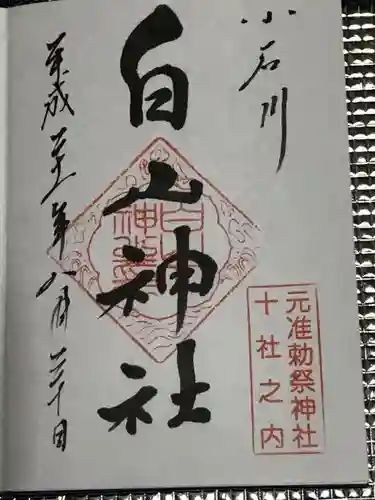 小石川
白山神社
平成二十一年八月三十日
元准勅祭神社
十社之内